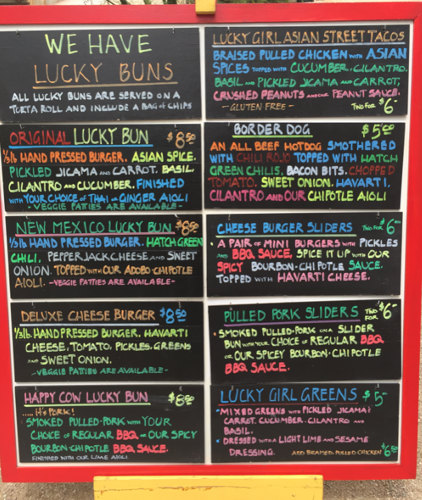 WE HAVE
LUCKY BUNS
ALL LUCKY BUNS ARE SERVED ON A
TORTA ROLL AND INCLUDE A BAG of CHIPS
ORIGINAL LUCKY BUN $8.50
1/3 lb. HAND PRESSED BURGER. ASIAN SPICE.
PICKLED JICAMA AND CARROT. BASIL.
CILANTRO AND CUCUMBER. FINISHED
WITH YOUR CHOICE OF THAI OR GINGER AIOLI
-VEGGIE PATTIES ARE AVAILABLE-
NEW MEXICO LUCKY BUN $8.50
1/3 lb. HAND PRESSED BURGER. HATCH GREEN
CHILI. PEPPERJACK CHEESE AND SWEET
ONION. TOPPED WITH OUR ADOBO-CHIPOTLE
AIOLI. -VEGGIE PATTIES ARE AVAILABLE-
DELUXE CHEESE BURGER $8.50
1/3 lb. HAND PRESSED BURGER. HAVARTI
CHEESE, TOMATO, PICKLES, GREENS
AND SWEET ONION.
-VEGGIE PATTIES ARE AVAILABLE-
HAPPY COW LUCKY BUN $8.50
... IT'S PORK!
SMOKED PULLED-PORK WITH YOUR
CHOICE OF REGULAR BBQ OR OUR SPICY
BOURBON-CHIPOTLE BBQ SAUCE.
FINISHED WITH OUR LIME AIOLI
LUCKY GIRL ASIAN STREET TACOS
BRAISED PULLED CHICKEN WITH ASIAN
SPICES TOPPED WITH CUCUMBER. CILANTRO.
BASIL AND PICKLED JICAMA AND CARROT,
CRUSHED PEANUTS AND OUR PEANUT SAUCE.
-GLUTEN FREE- TWO FOR $6-
BORDER DOG $5.00
AN ALL BEEF HOTDOG SMOTHERED
WITH CHILI ROJO TOPPED WITH HATCH
GREEN CHILIS. BACON BITS. CHOPPED
TOMATO. SWEET ONION. HAVARTI.
CILANTRO AND OUR CHIPOTLE AIOLI
CHEESE BURGER SLIDERS TWO FOR $6-
A PAIR OF MINI BURGERS WITH PICKLES
AND BBQ SAUCE. SPICE IT UP WITH OUR
SPICY BOURBON-CHIPOTLE SAUCE.
TOPPED WITH HAVARTI CHEESE.
PULLED PORK SLIDERS TWO FOR $6-
SMOKED PULLED-PORK ON A SLIDER
BUN WITH YOUR CHOICE OF REGULAR BBQ
OR OUR SPICY BOURBON-CHIPOTLE
BBQ SAUCE.
LUCKY GIRL GREENS $5-
MIXED GREENS WITH PICKLED JICAMA &
CARROT. CUCUMBER. CILANTRO AND
BASIL.
DRESSED WITH A LIGHT LIME AND SESAME
DRESSING. ADD BRAISED PULLED CHICKEN